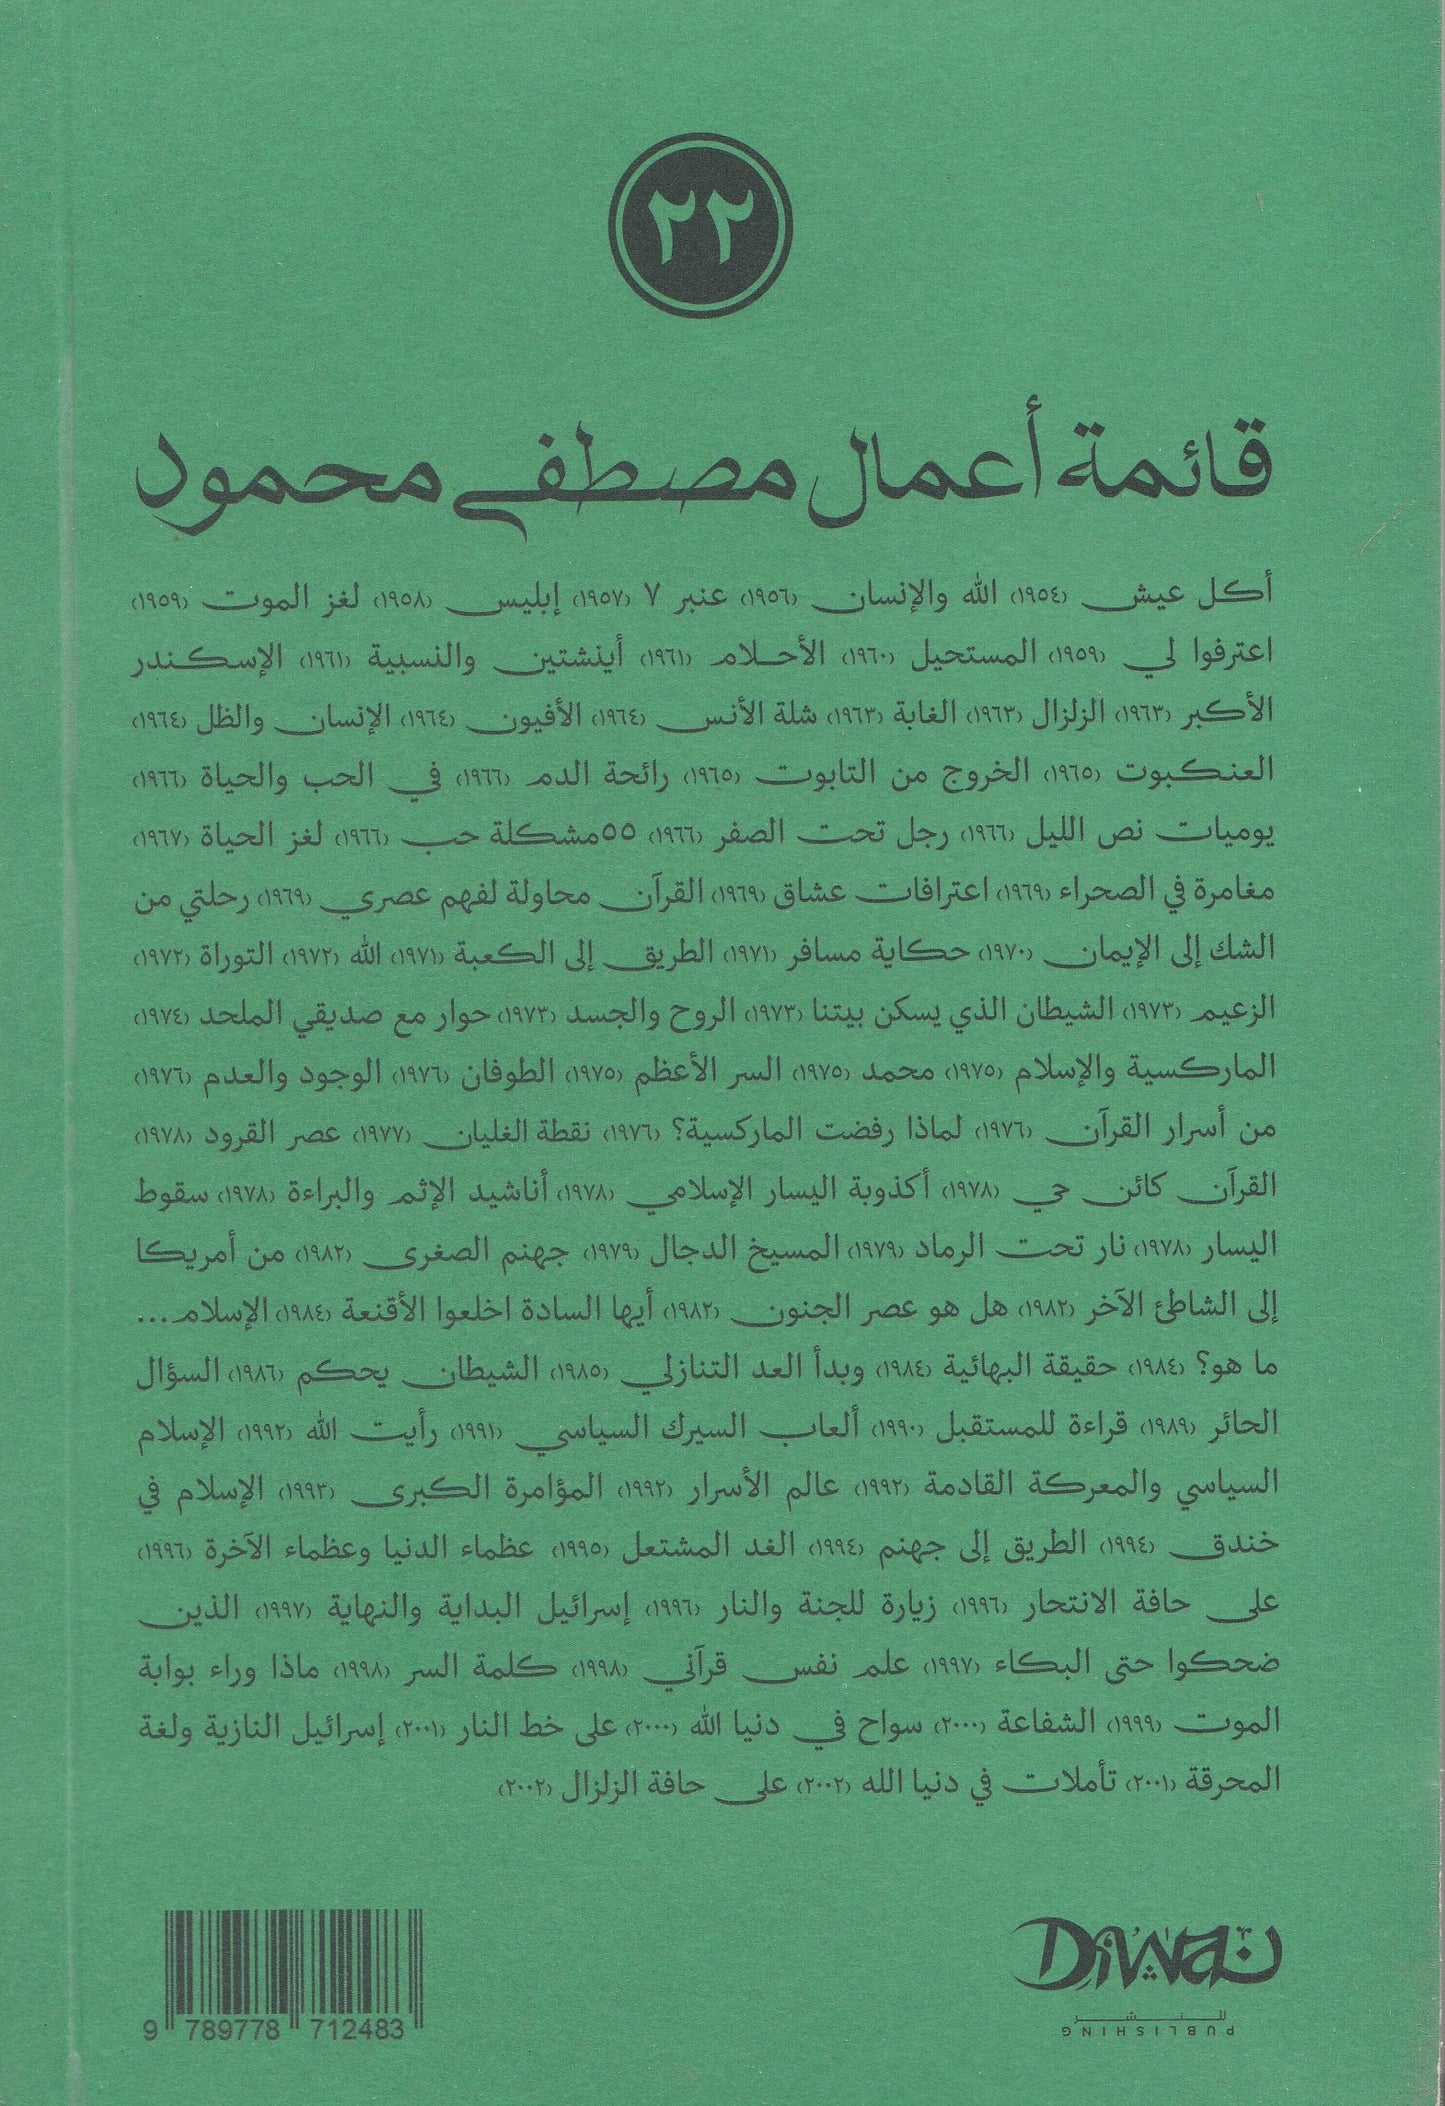 ٢٢
قائمة أعمال مصطفى محمود
أكل عيش (١٩٥٤) الله والإنسان (١٩٥٦) عنبر ٧ (١٩٥٧) إبليس (١٩٥٨) لغز الموت (١٩٥٩)
اعترفوا لي (١٩٥٩) المستحيل (١٩٦٠) الأحلام (١٩٦١) أينشتين والنسبية (١٩٦١) الإسكندر
الأكبر (١٩٦٣) الزلزال (١٩٦٣) الغابة (١٩٦٣) شلة الأنس (١٩٦٤) الأفيون (١٩٦٤) الإنسان والظل (١٩٦٤)
العنكبوت (١٩٦٥) الخروج من التابوت (١٩٦٥) رائحة الدم (١٩٦٦) في الحب والحياة (١٩٦٦)
يوميات نص الليل (١٩٦٦) رجل تحت الصفر (١٩٦٦) ٥٥مشكلة حب (١٩٦٦) لغز الحياة (١٩٦٧)
مغامرة في الصحراء (١٩٦٩) اعترافات عشاق (١٩٦٩) القرآن محاولة لفهم عصري (١٩٦٩) رحلتي من
الشك إلى الإيمان (١٩٧٠) حكاية مسافر (١٩٧١) الطريق إلى الكعبة (١٩٧١) الله (١٩٧٢) التوراة (١٩٧٢)
الزعيم (١٩٧٣) الشيطان الذي يسكن بيتنا (١٩٧٣) الروح والجسد (١٩٧٣) حوار مع صديقي الملحد (١٩٧٤)
الماركسية والإسلام (١٩٧٥) محمد (١٩٧٥) السر الأعظم (١٩٧٥) الطوفان (١٩٧٦) الوجود والعدم (١٩٧٦)
من أسرار القرآن (١٩٧٦) لماذا رفضت الماركسية؟ (١٩٧٦) نقطة الغليان (١٩٧٧) عصر القرود (١٩٧٨)
القرآن كائن حي (١٩٧٨) أكذوبة اليسار الإسلامي (١٩٧٨) أناشيد الإثم والبراءة (١٩٧٨) سقوط
اليسار (١٩٧٨) نار تحت الرماد (١٩٧٩) المسيخ الدجال (١٩٧٩) جهنم الصغرى (١٩٨٢) من أمريكا
إلى الشاطئ الآخر (١٩٨٢) هل هو عصر الجنون (١٩٨٢) أيها السادة اخلعوا الأقنعة (١٩٨٤) الإسلام...
ما هو؟ (١٩٨٤) حقيقة البهائية (١٩٨٤) وبدأ العد التنازلي (١٩٨٥) الشيطان يحكم (١٩٨٦) السؤال
الحائر (١٩٨٩) قراءة للمستقبل (١٩٩٠) ألعاب السيرك السياسي (١٩٩١) رأيت الله (١٩٩٢) الإسلام
السياسي والمعركة القادمة (١٩٩٢) عالم الأسرار (١٩٩٢) المؤامرة الكبرى (١٩٩٣) الإسلام في
خندق (١٩٩٤) الطريق إلى جهنم (١٩٩٤) الغد المشتعل (١٩٩٥) عظماء الدنيا وعظماء الآخرة (١٩٩٦)
على حافة الانتحار (١٩٩٦) زيارة للجنة والنار (١٩٩٦) إسرائيل البداية والنهاية (١٩٩٧) الذين
ضحكوا حتى البكاء (١٩٩٧) علم نفس قرآني (١٩٩٨) كلمة السر (١٩٩٨) ماذا وراء بوابة
الموت (١٩٩٩) الشفاعة (٢٠٠٠) سواح في دنيا الله (٢٠٠٠) على خط النار (٢٠٠١) إسرائيل النازية ولغة
المحرقة (٢٠٠١) تأملات في دنيا الله (٢٠٠٢) على حافة الزلزال (٢٠٠٢)
DiWaN
للنشر
PUBLISHING
9 789778 712483